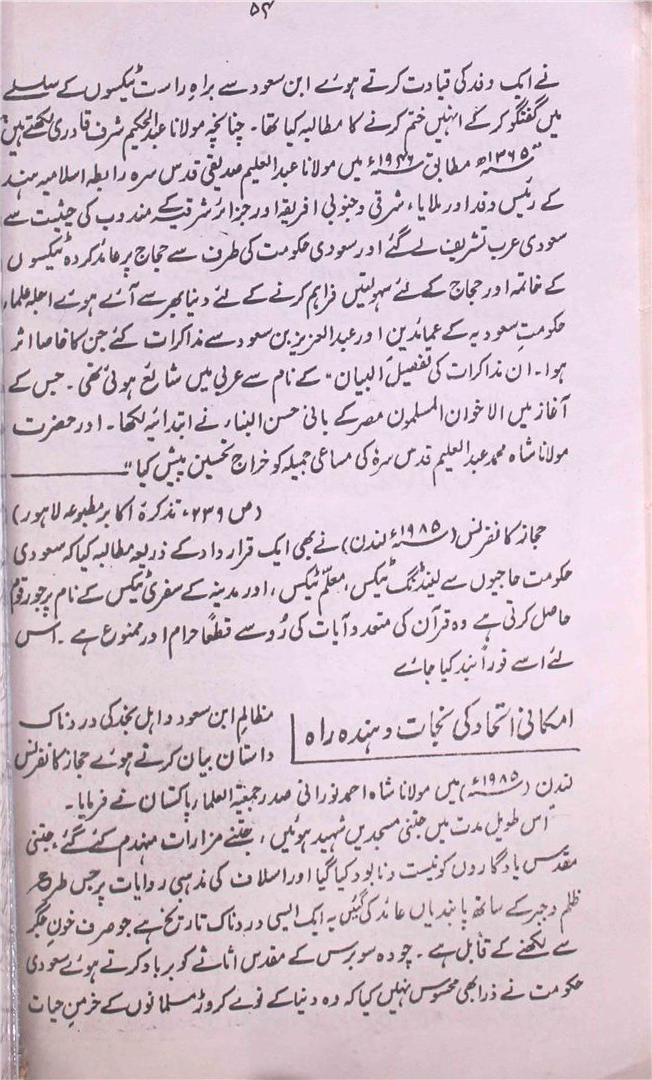 ۵۴
نے ایک وفد کی قیادت کرتے ہوئے ابن سعود سے براہِ راست ٹیکسوں کے سلسلے
میں گفتگو کر کے انہیں ختم کرنے کا مطالبہ کیا تھا۔ چنانچہ مولانا عبدالحکیم شرف قادری لکھتے ہیں
"۱۳۶۵ھ مطابق ۱۹۴۶ء میں مولانا عبدالعلیم صدیقی قدس سرہ رابطہ اسلامیہ ہند
کے رئیس وفد اور ملایا، شرقی و جنوبی افریقہ اور جزائر شرقیہ کے مندوب کی حیثیت سے
سعودی عرب تشریف لے گئے اور سعودی حکومت کی طرف سے حجاج پر عائد کردہ ٹیکسوں
کے خاتمہ اور حجاج کے لئے سہولتیں فراہم کرنے کے لئے دنیا بھر سے آئے ہوئے اجلہ علماء
حکومتِ سعودیہ کے عمائدین اور عبدالعزیز بن سعود سے مذاکرات کئے جن کا خاصا اثر
ہوا۔ ان مذاکرات کی تفصیل "البیان" کے نام سے عربی میں شائع ہوئی تھی۔ جس کے
آغاز میں الاخوان المسلمون مصر کے بانی حسن البناء نے ابتدائیہ لکھا۔ اور حضرت
مولانا شاہ محمد عبدالعلیم قدس سرہٗ کی مساعی جمیلہ کو خراج تحسین پیش کیا"
(ص ۲۳۹، تذکرہ اکابر مطبوعہ لاہور)
حجاز کانفرنس (۱۹۸۵ء لندن) نے بھی ایک قرارداد کے ذریعہ مطالبہ کیا کہ سعودی
حکومت حاجیوں سے لینڈنگ ٹیکس، معلّم ٹیکس، اور مدینہ کے سفری ٹیکس کے نام پر جو رقوم
حاصل کرتی ہے وہ قرآن کی متعدد آیات کی رُو سے قطعًا حرام اور ممنوع ہے۔ اس
لئے اسے فوراً بند کیا جائے
امکانی اتحاد کی نجات دہندہ راہ
مظالم ابن سعود و اہل نجد کی دردناک
داستان بیان کرتے ہوئے حجاز کانفرنس
لندن (۱۹۸۵ء) میں مولانا شاہ احمد نورانی صدر جمعیۃ العلماء پاکستان نے فرمایا۔
اس طویل مدت میں جتنی مسجدیں شہید ہوئیں، جتنے مزارات منہدم کئے گئے، جتنی
مقدس یادگاروں کو نیست و نابود کیا گیا اور اسلاف کی مذہبی روایات پر جس طرح
ظلم و جبر کے ساتھ پابندیاں عائد کی گئیں یہ ایک ایسی دردناک تاریخ ہے جو صرف خونِ جگر
سے لکھنے کے قابل ہے۔ چودہ سو برس کے مقدس اثاثے کو برباد کرتے ہوئے سعودی
حکومت نے ذرا بھی محسوس نہیں کیا کہ وہ دنیا کے نوے کروڑ مسلمانوں کے خرمنِ حیات